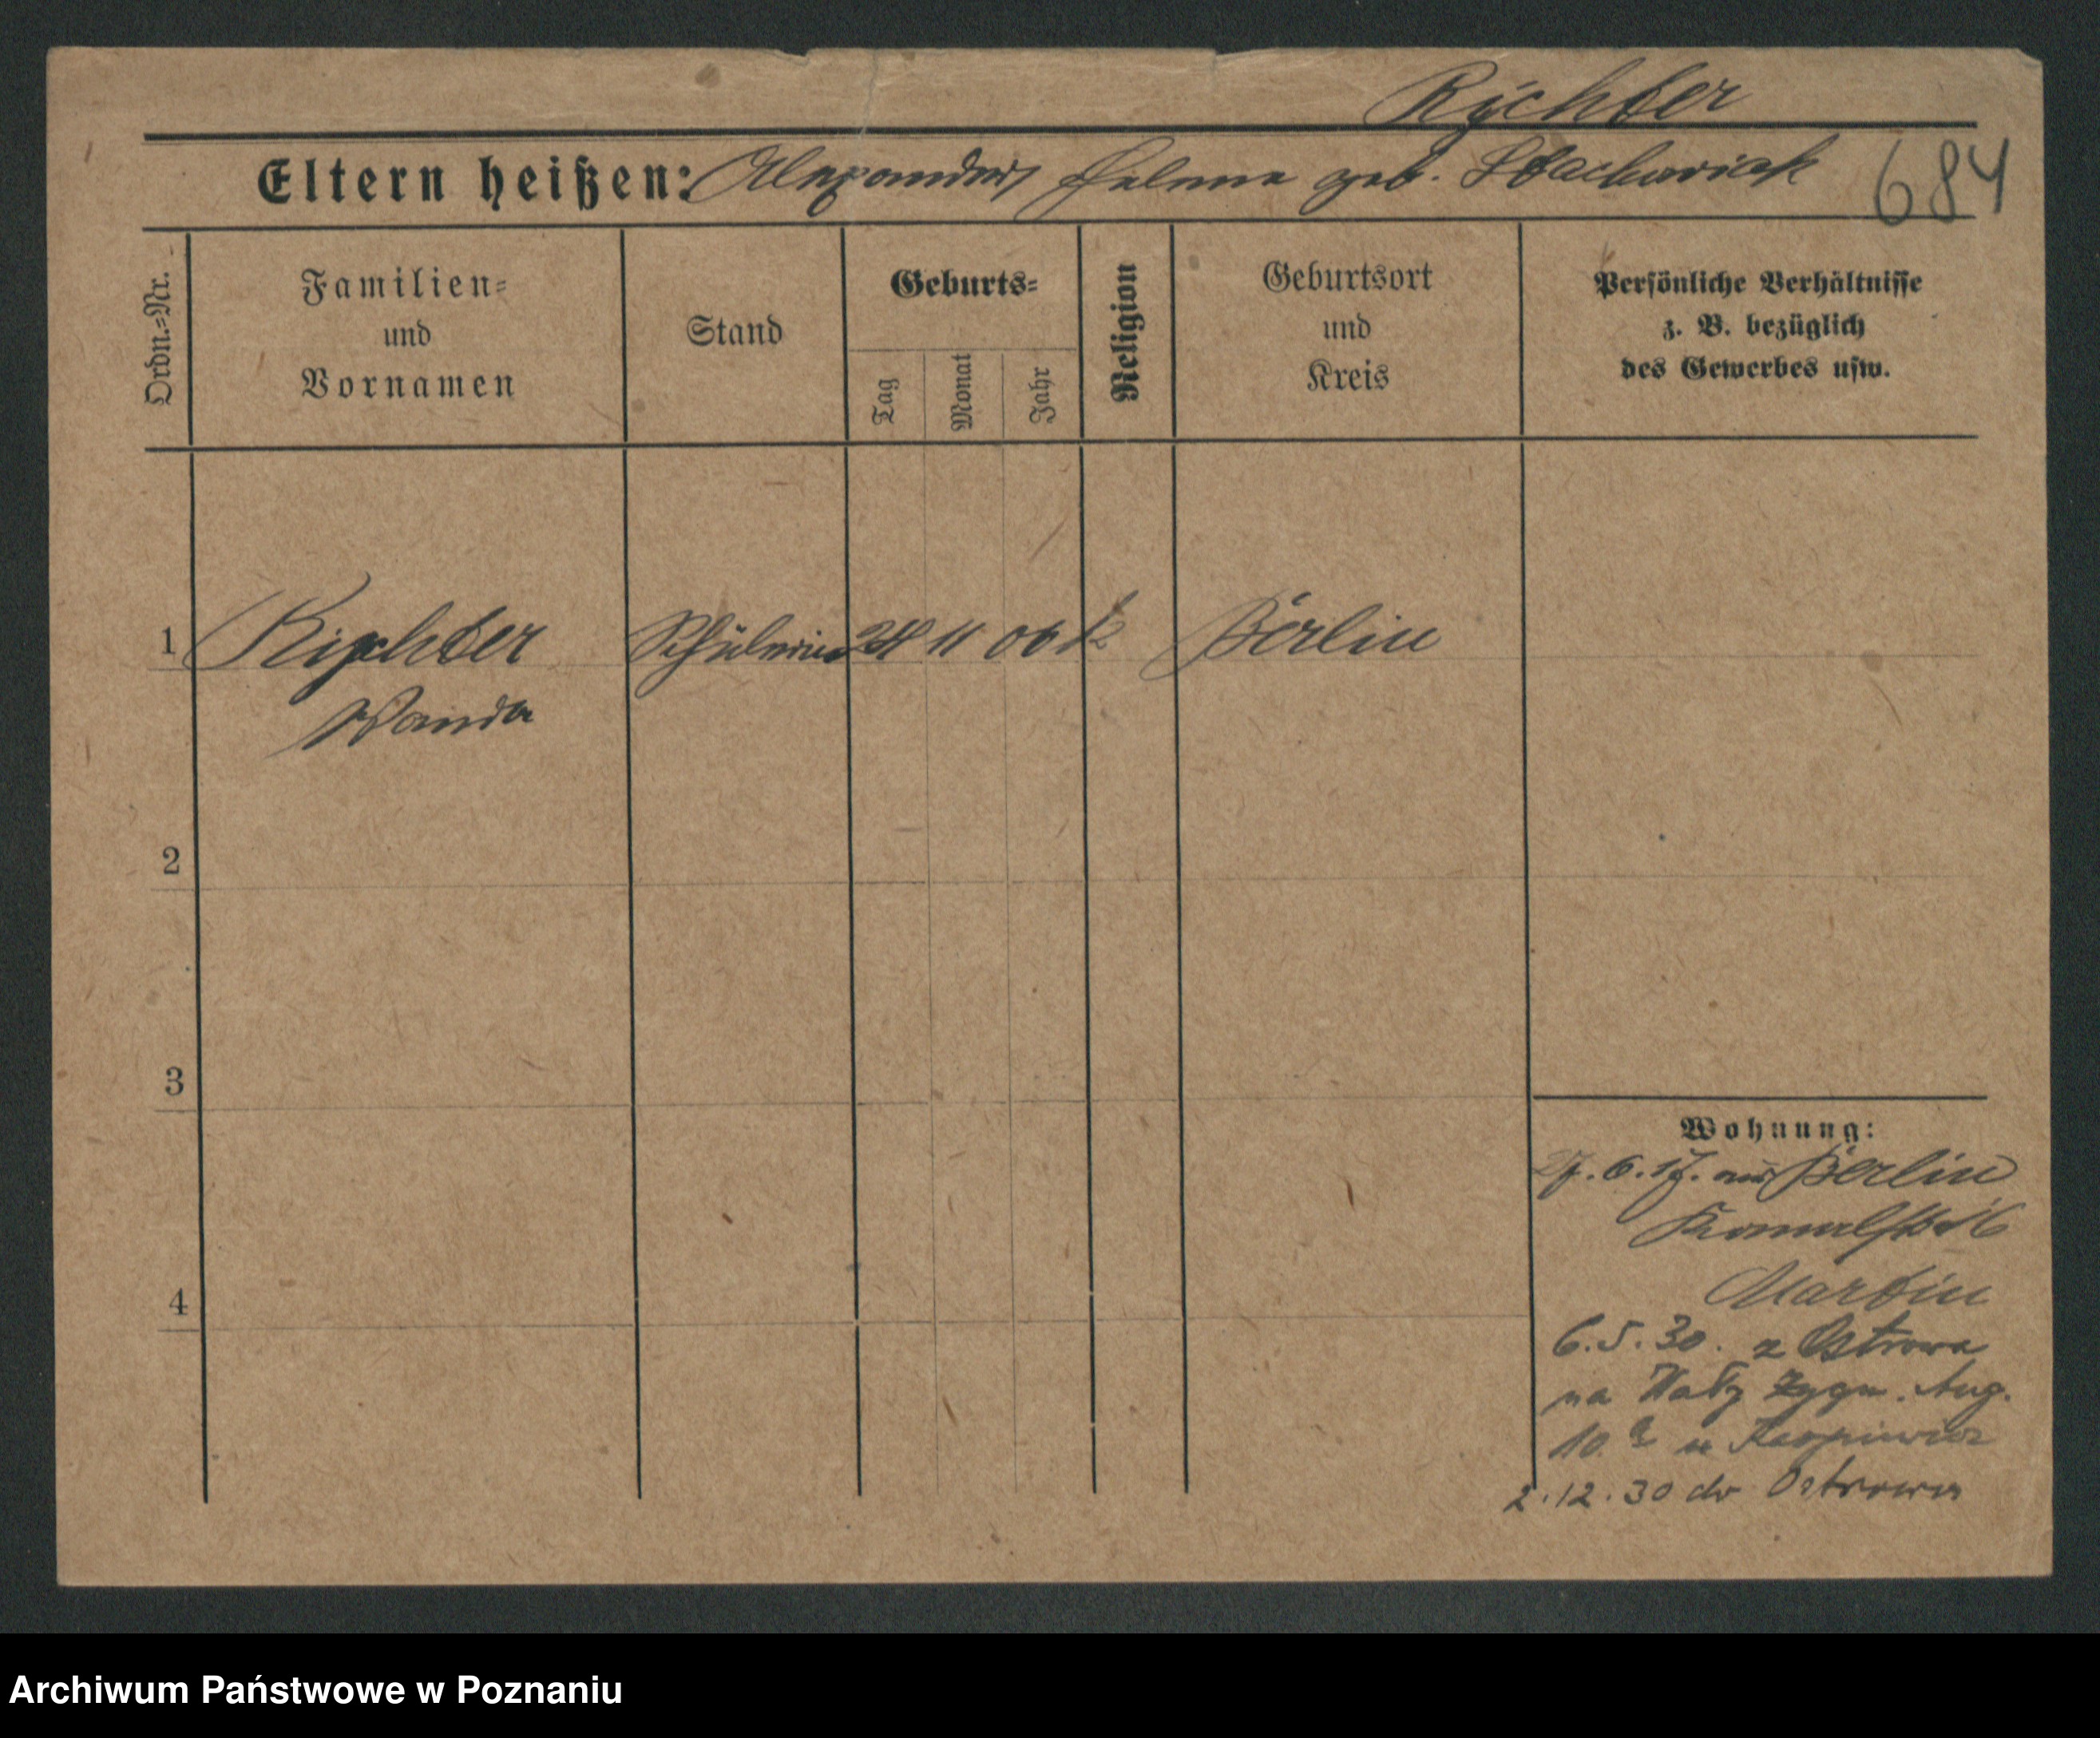 Rychter
Eltern heißen: Alexander, Helene geb. Stachowiak
684
Ordn.=Nr.
Familien=
und
Vornamen
Stand
Geburts=
Tag
Monat
Jahr
Religion
Geburtsort
und
Kreis
Persönliche Verhältnisse
z. B. bezüglich
des Gewerbes usw.
1
Richter
Schülerin
11 06 k
Berlin
Wanda
2
3
4
Wohnung:
6. 17. aus Berlin
Martin
6.5.30. z Ostrowa
na Wały Zygm. Aug.
10 a u
2.12.30 do Ostrowa
Archiwum Państwowe w Poznaniu